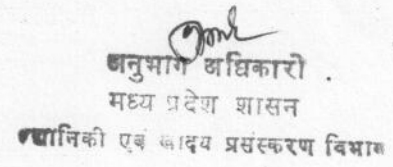 अनुभाग अधिकारी .
मध्य प्रदेश शासन
उद्यानिकी एवं खाद्य प्रसंस्करण विभाग